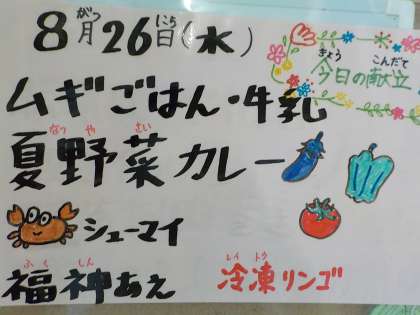 8月26日(水)
がつ にち
きょう こんだて
今日の献立
ムギごはん・牛乳
なつ や さい
夏野菜カレー
シューマイ
ふく しん
福神あえ
れい とう
冷凍リンゴ